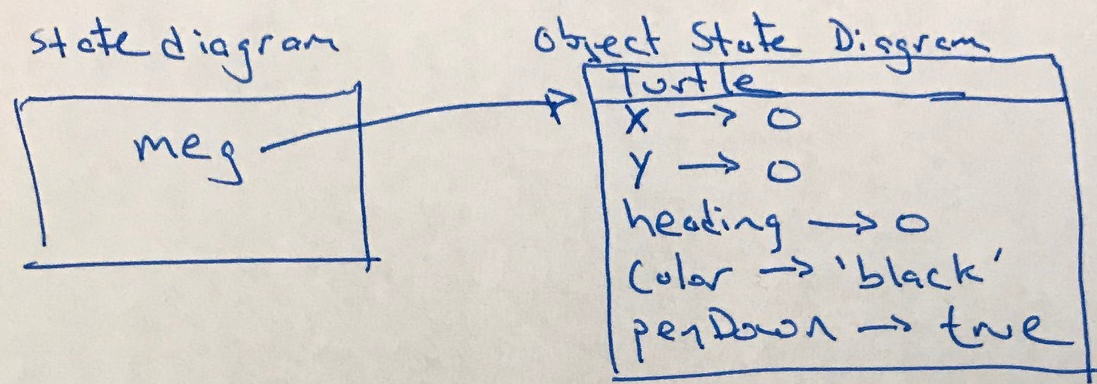 state diagram
meg
Object State Diagram
Turtle
x → 0
y → 0
heading → 0
Color → 'black'
penDown → true